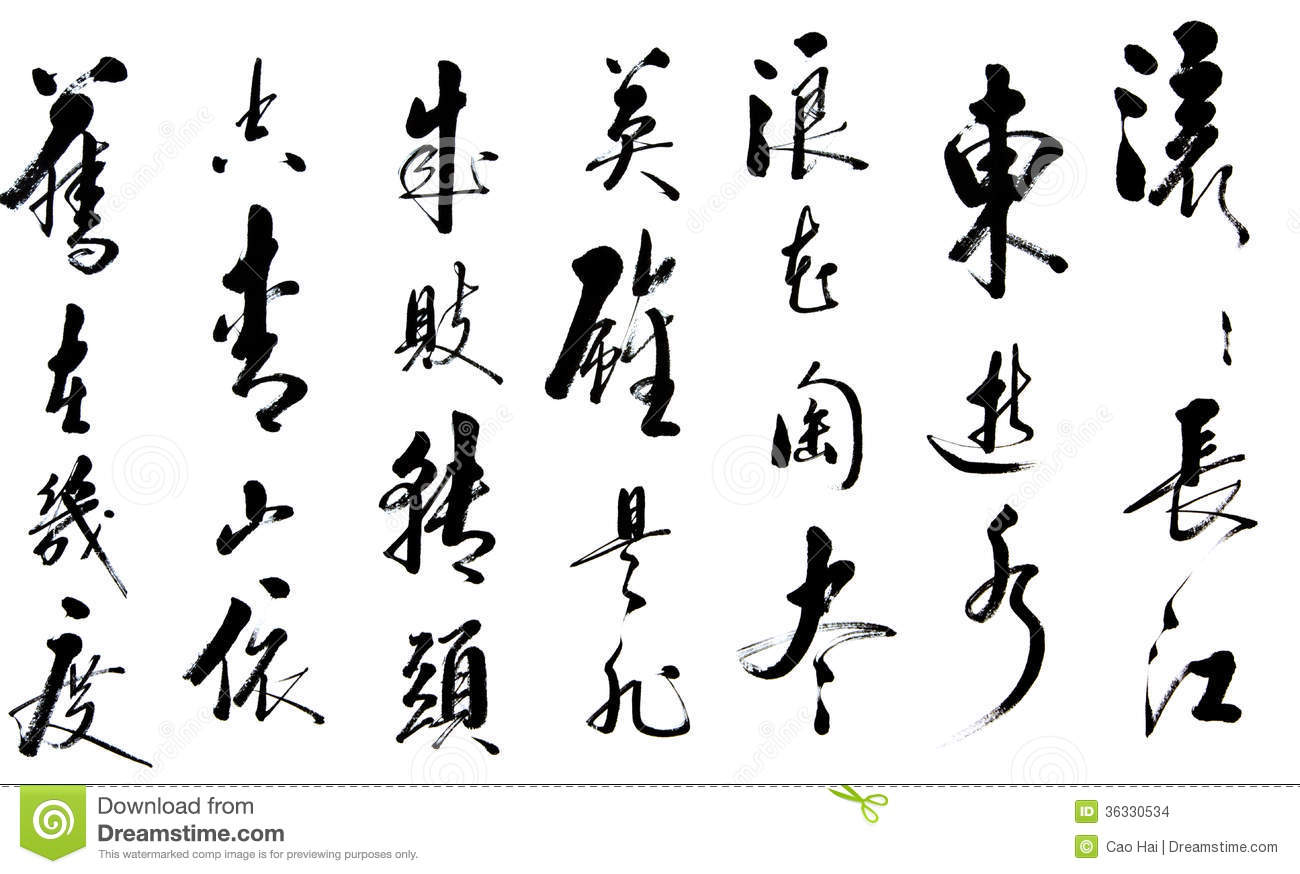 滚〻長江
東逝水
浪花淘尽
英雄是非
成敗轉頭
空青山依
舊在幾度
Download from
Dreamstime.com
This watermarked comp image is for previewing purposes only.
ID 36330534
© Cao Hai | Dreamstime.com